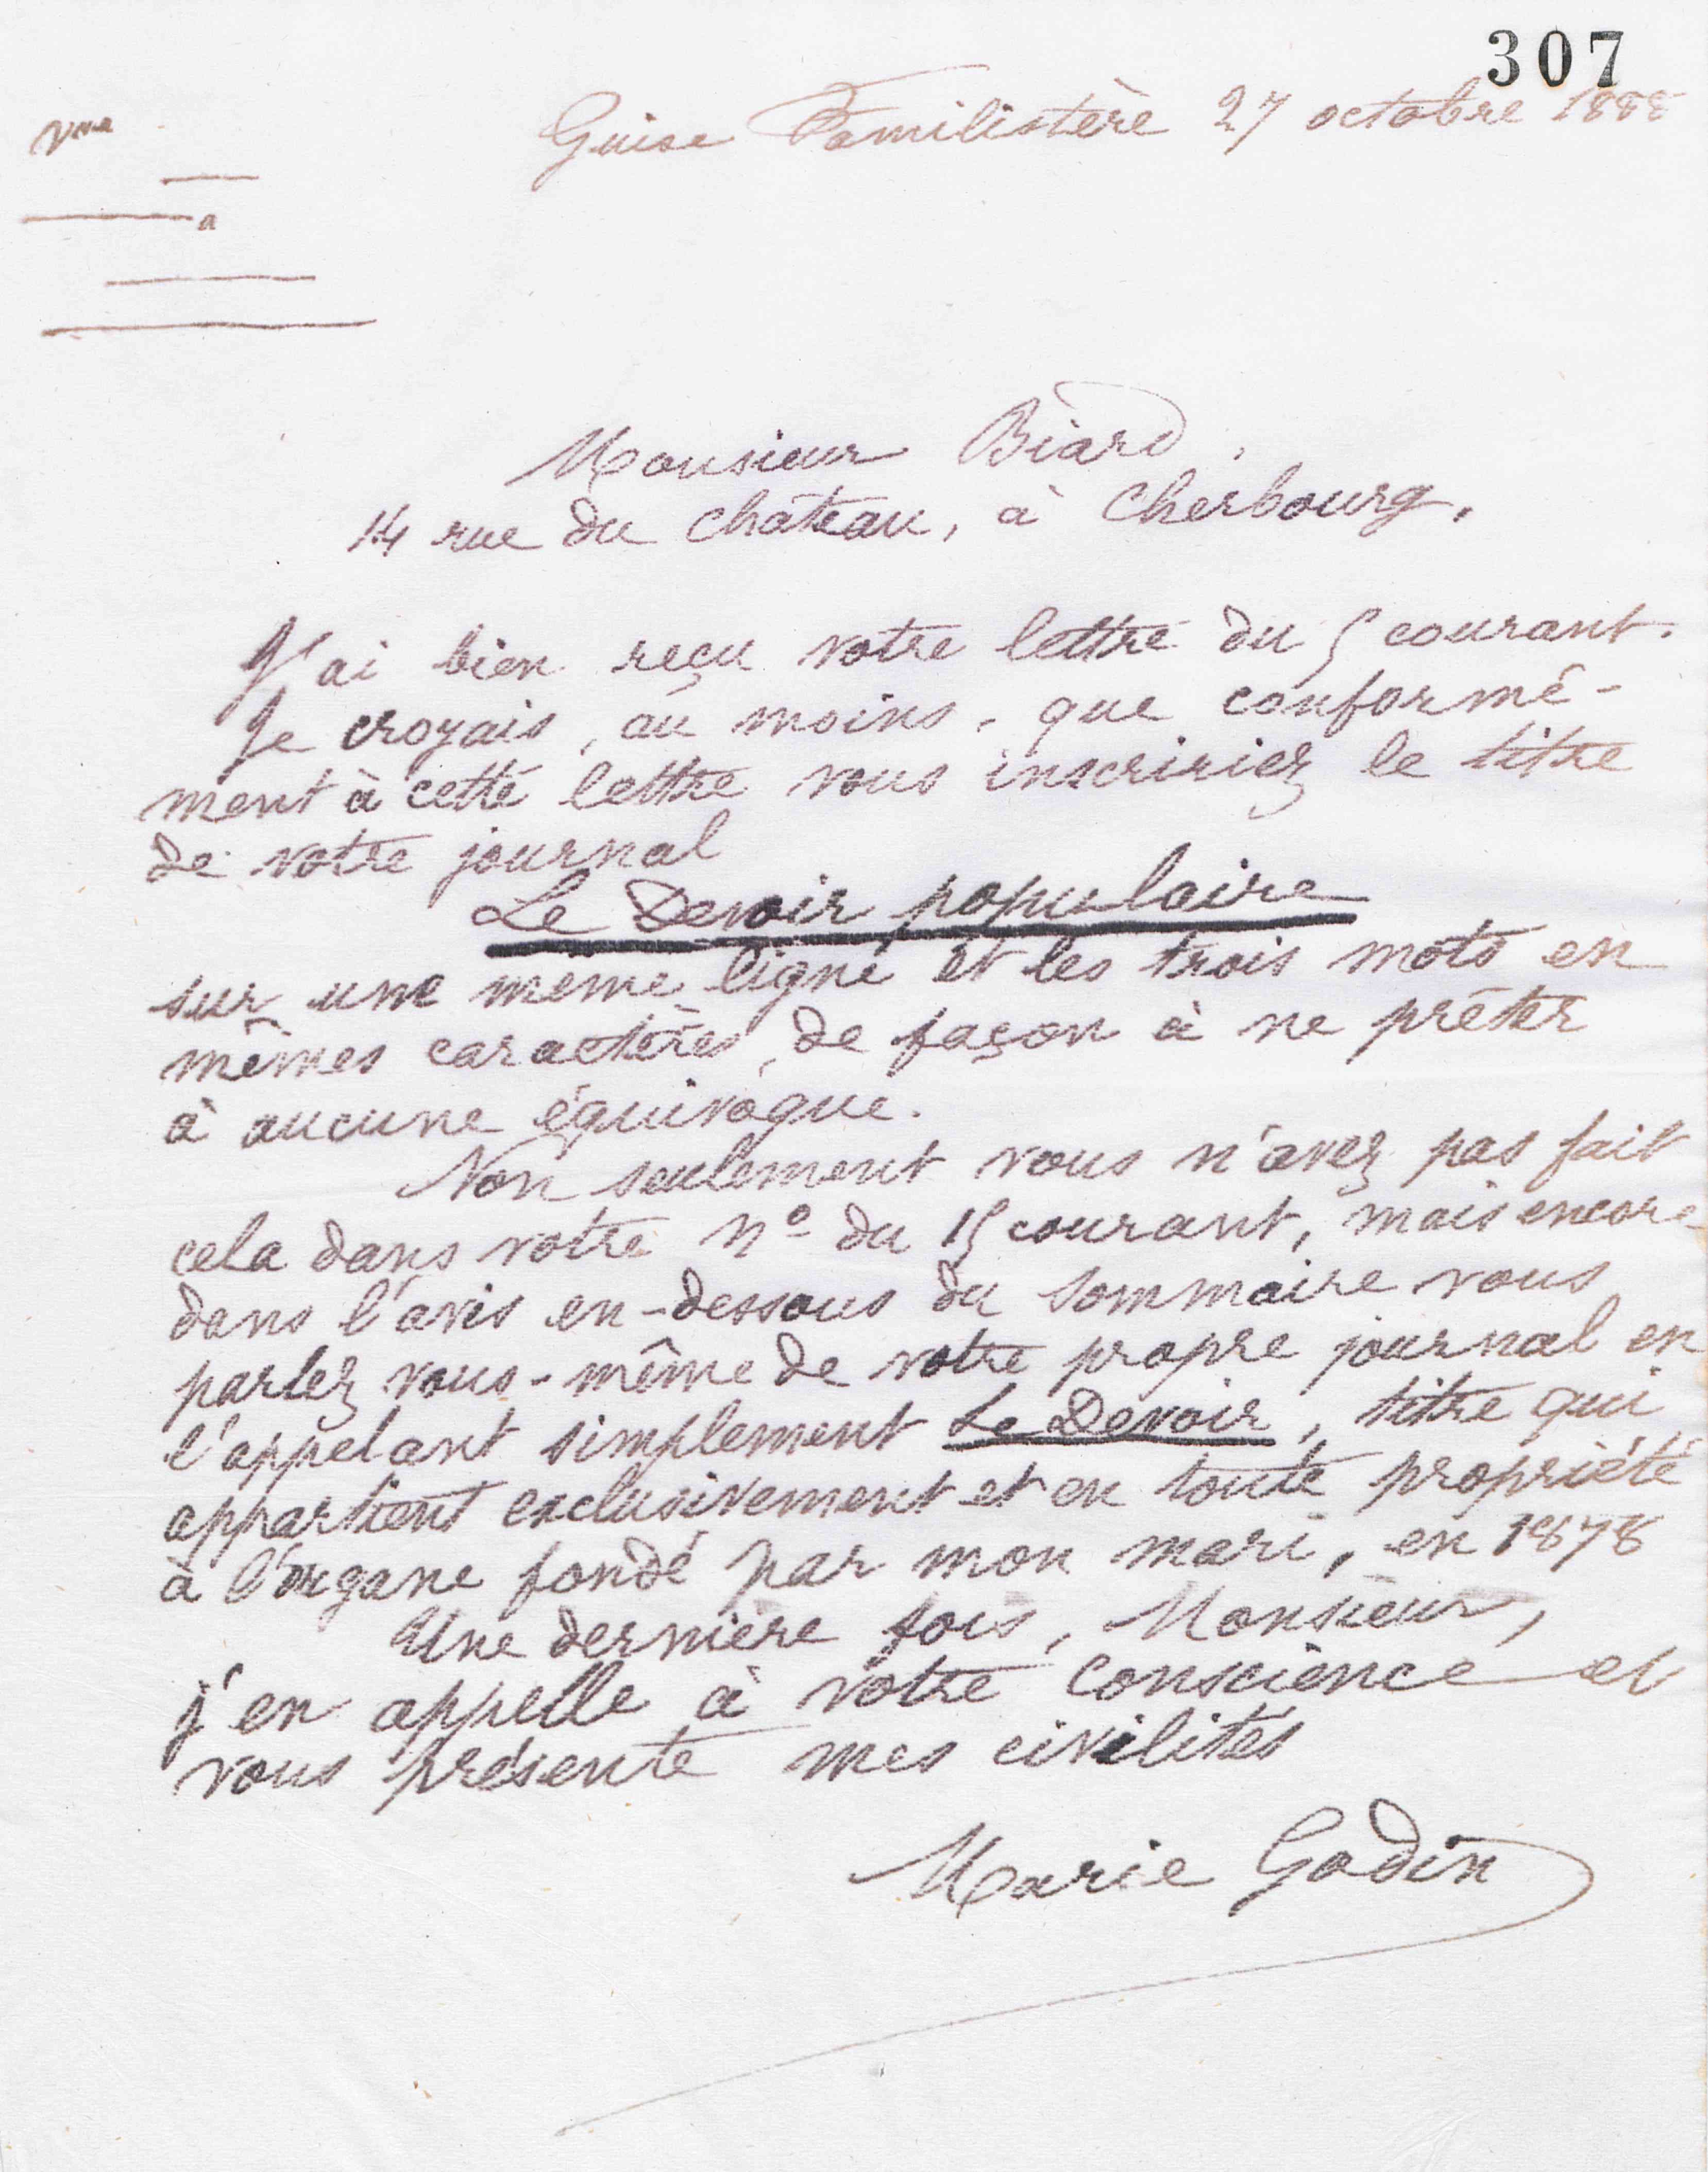 307
Guise Familistère 27 octobre 1888
Vve
a
Monsieur Biard,
14 rue du Château, à Cherbourg.
J'ai bien reçu votre lettre du 5 courant.
Je croyais, au moins, que conformé-
ment à cette lettre vous inscririez le titre
de votre journal
Le Devoir populaire
sur une même ligne et les trois mots en
mêmes caractères, de façon à ne prêter
à aucune équivoque.
Non seulement vous n'avez pas fait
cela dans votre Nº du 15 courant, mais encore
dans l'avis en-dessous du sommaire vous
parlez vous-même de votre propre journal en
l'appelant simplement Le Devoir, titre qui
appartient exclusivement et en toute propriété
à l'organe fondé par mon mari, en 1878
Une dernière fois, Monsieur,
j'en appelle à votre conscience et
vous présente mes civilités
Marie Godin